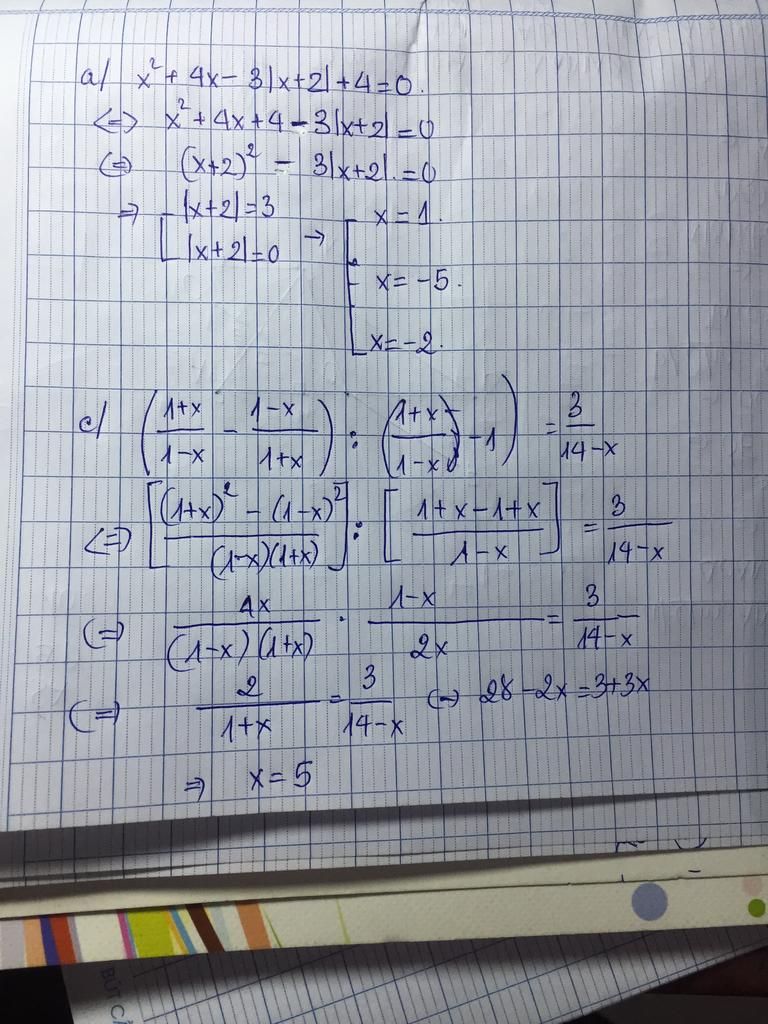 a/ x² + 4x - 3|x+2| + 4 = 0.
<=> x² + 4x + 4 - 3|x+2| = 0
(=) (x+2)² - 3|x+2|. = 0
=> [ |x+2| = 3 → [ x = 1.
|x+2| = 0
x = -5.
x = -2.
c/ ( (1+x)/(1-x) - (1-x)/(1+x) ) : ( (1+x)/(1-x) - 1 ) = 3/(14-x)
<=> [ ((1+x)² - (1-x)²)/((1-x)(1+x)) ] : [ (1+x-1+x)/(1-x) ] = 3/(14-x)
(=) 4x/((1-x)(1+x)) . (1-x)/(2x) = 3/(14-x)
(=) 2/(1+x) = 3/(14-x) (=) 28 - 2x = 3+3x
=> x = 5
BÚT